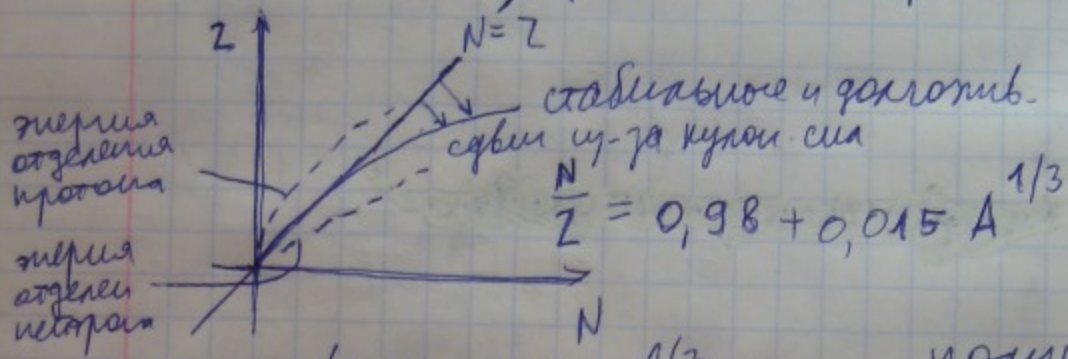 Z
N = Z
стабильные и долгожив.
сдвиг из-за кулон. сил
энергия
отделения
протона
N/Z = 0,98 + 0,015 A^1/3
энергия
отделен
нейтрон
N
1/3